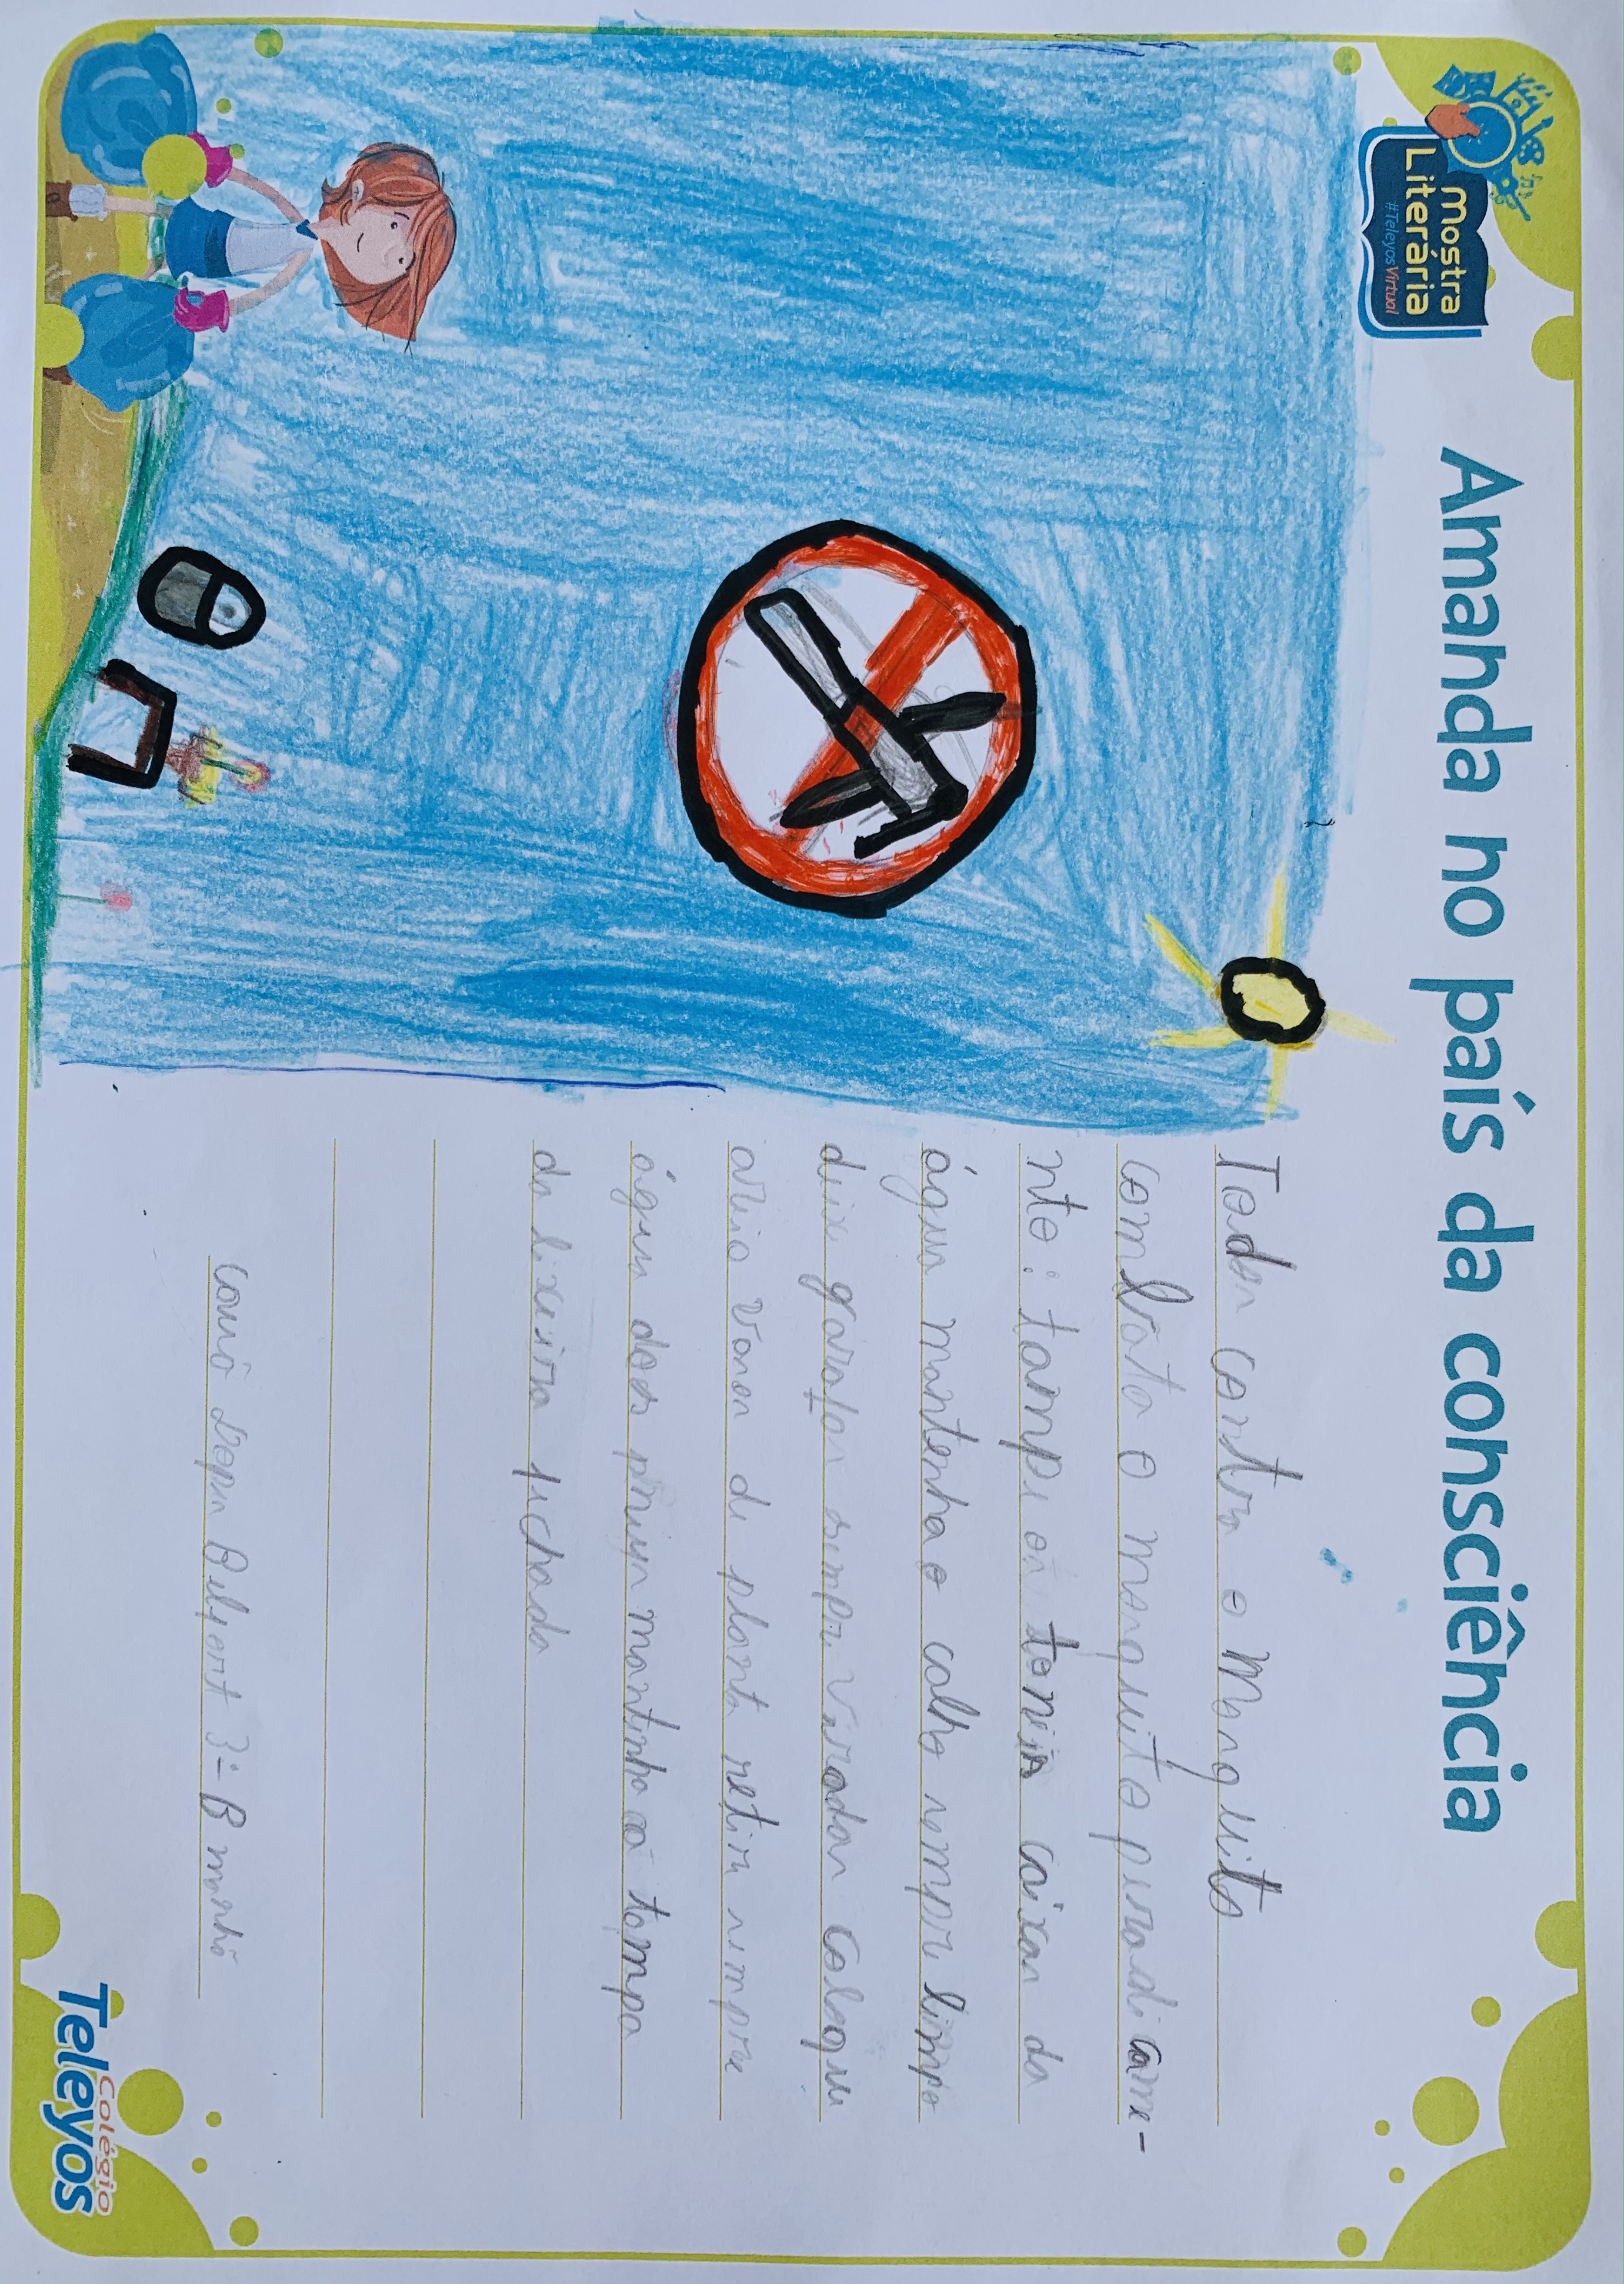 Mostra
Literária
#TeleyosVirtual
Amanda no país da consciência
Todos contra o Mosquito
combata o mosquito piriadicame-
nto: tampe os tonéis caixas da
água mantenha o calha sempre limpa
deixe garafas sempre viradas coloque
areia vasos de planta retire sempre
água dos pneus mantenha a tampa
da lixeira fichada
3º B manhã
Colégio
Teleyos